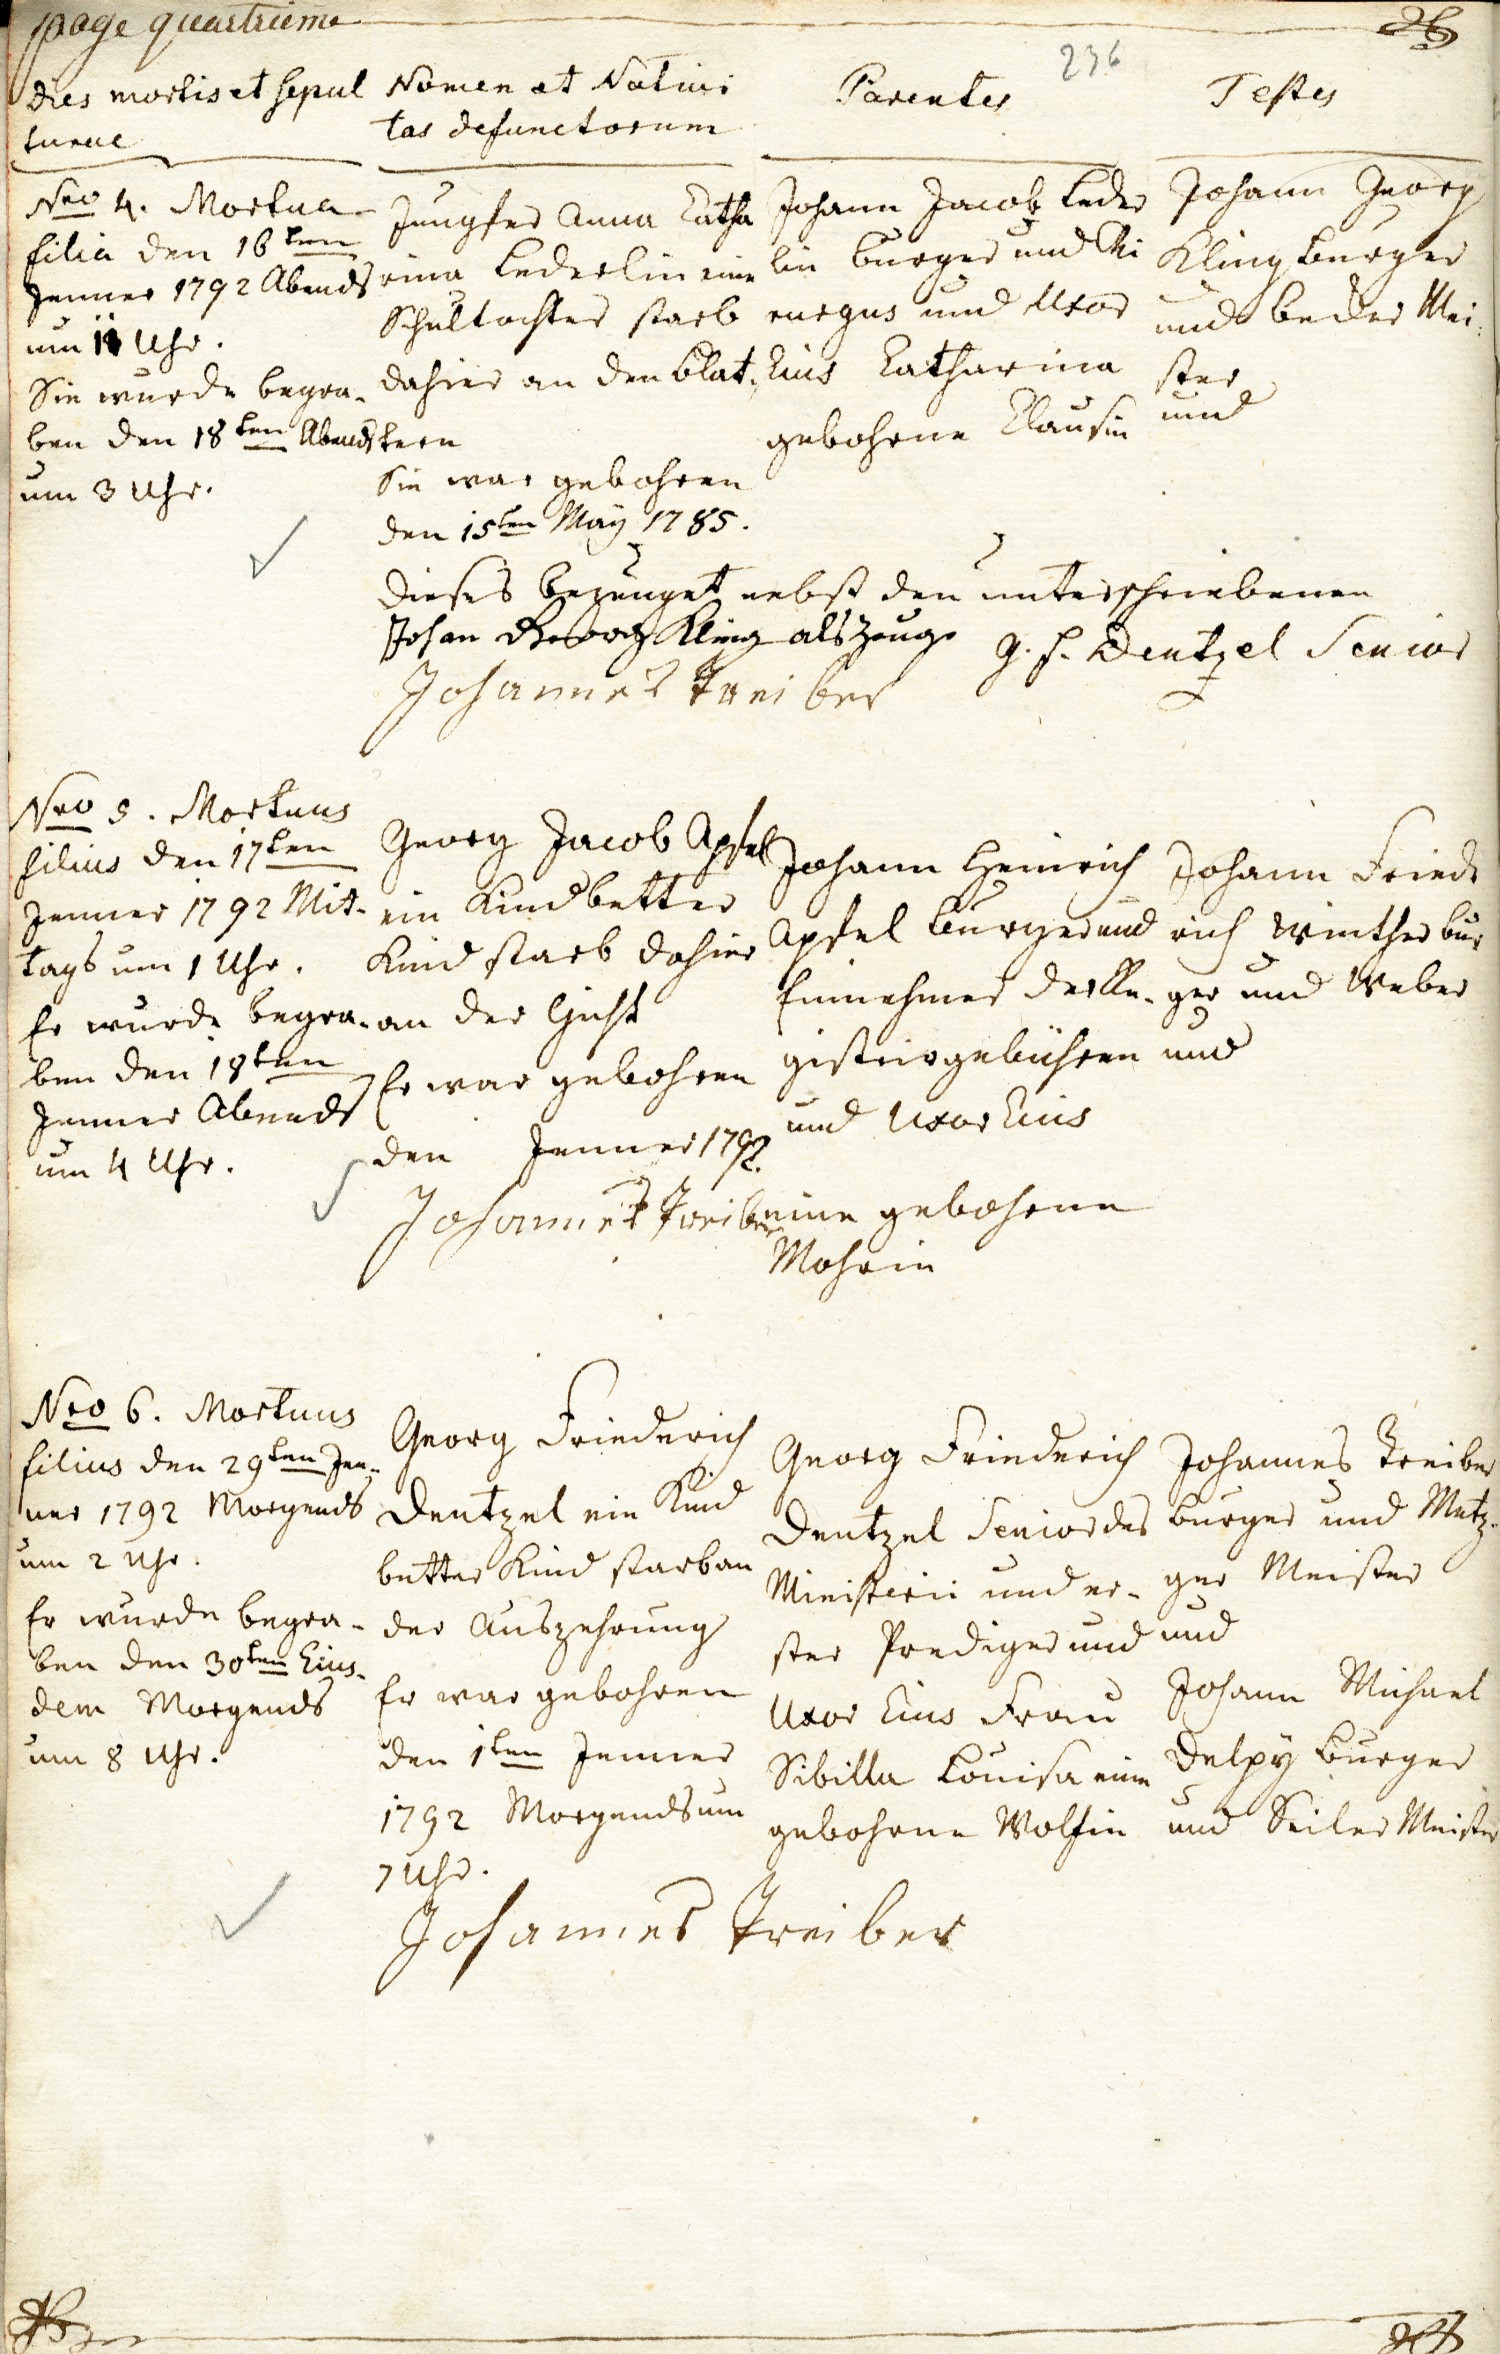 page quatrieme
236
Dies mortis et sepul
turae
Nomen et Nativi
tas defunctorum
Parentes
Testes
Nro 4. Mortua
filia den 16ten
Jenner 1792 Abends
um 11 Uhr.
Sie wurde begra-
ben den 18ten Abends
um 3 Uhr.
Jungfer Anna Catha
rina Lederlin eine
Schultochter starb
dahier an den Blat-
tern
Sie war gebohren
den 15ten Maÿ 1785.
Johann Jacob Leder
lin burger und Chi
rurgus und Uxor
Eius Catharina
gebohrne Clausin
Johann Georg
Kling burger
und becker Mei-
ster
und
Dieses bezeuget nebst den unterschriebenen
Johan Georg Kling als Zeuge
G. F. Dentzel Senior
Johannes Treiber
Nro 5. Mortuus
filius den 17ten
Jenner 1792 Mit-
tags um 1 Uhr.
Er wurde begra-
ben den 18ten
Jenner Abends
um 4 Uhr.
Georg Jacob Apfel
ein Kindbetter
Kind starb dahier
an der Gicht
Er war gebohren
den Jenner 1792.
Johannes Treiber
Johann Heinrich
Apfel burger und
Einnehmer der Re-
gistrirgebühren
und Uxor Eius
eine gebohrne
Mohrin
Johann Friede
rich Winther bur
ger und Weber
und
Nro 6. Mortuus
filius den 29ten Jen-
ner 1792 Morgends
um 2 Uhr.
Er wurde begra-
ben den 30ten Eius-
dem Morgends
um 8 Uhr.
Georg Friederich
Dentzel ein Kind
better Kind starb an
der Auszehrung
Er war gebohren
den 1ten Jenner
1792 Morgends um
7 Uhr.
Georg Friederich
Dentzel Senior des
Ministerii und er-
ster Prediger und
Uxor Eius Frau
Sibilla Louisa eine
gebohrne Wolfin
Johannes Treiber
burger und Metz-
ger Meister
und
Johann Michael
Delpÿ burger
und Seiler Meister
Johannes Treiber